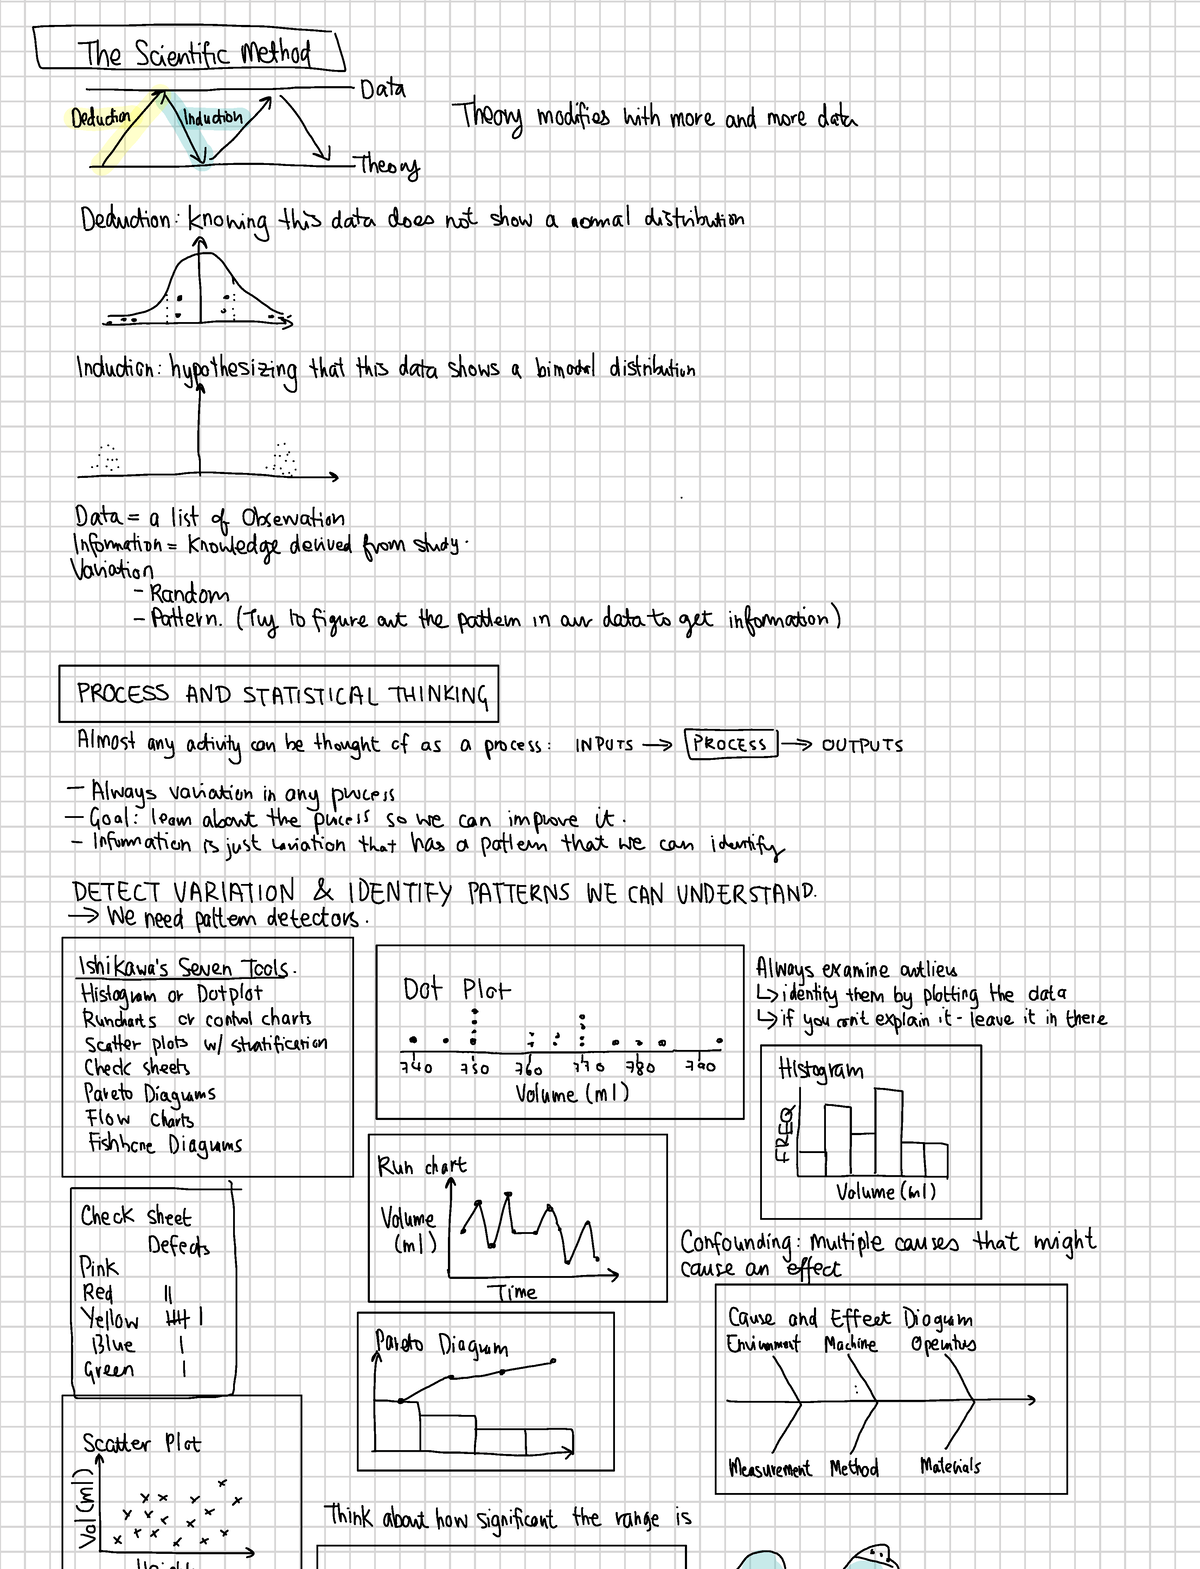 The Scientific Method
Data
Deduction
Induction
Theory modifies with more and more data
Theory
Deduction: knowing this data does not show a normal distribution
Induction: hypothesizing that this data shows a bimodal distribution
Data = a list of Observation
Information = Knowledge derived from study.
Variation
- Random
- Pattern. (Try to figure out the pattern in our data to get information)
PROCESS AND STATISTICAL THINKING
Almost any activity can be thought of as a process: INPUTS → PROCESS → OUTPUTS
- Always variation in any process
- Goal: learn about the process so we can improve it.
- Information is just variation that has a pattern that we can identify
DETECT VARIATION & IDENTIFY PATTERNS WE CAN UNDERSTAND.
→ We need pattern detectors.
Ishikawa's Seven Tools.
Histogram or Dotplot
Runcharts or control charts
Scatter plots w/ stratification
Check sheets
Pareto Diagrams
Flow Charts
Fishbone Diagrams
Dot Plot
740 750 760 770 780 790
Volume (ml)
Always examine outliers
↳ identify them by plotting the data
↳ if you can't explain it - leave it in there
Histogram
FREQ
Volume (ml)
Run chart
Volume
(ml)
Time
Check sheet
Defects
Pink
Red ||
Yellow 卌 |
Blue |
Green |
Confounding: multiple causes that might
cause an effect
Pareto Diagram
Cause and Effect Diagram
Environment Machine Operators
Measurement Method Materials
Scatter Plot
Vol (ml)
Think about how significant the range is